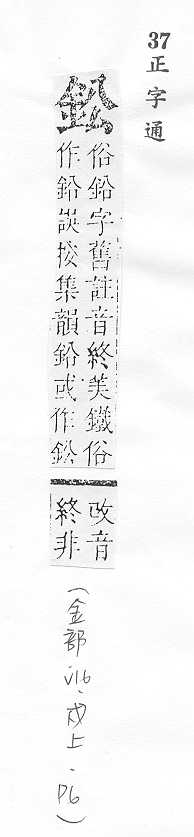 37 正字通
鈆
俗鉛字舊註音終美鐵俗
作鉛誤按集韻鉛或作鈆
改音
終非
(金部.V16.戌上.P6)